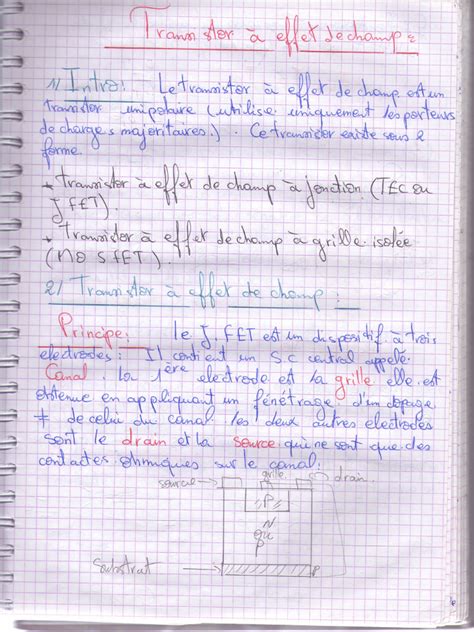 Transistor à effet de champ :
1) Intro : Le transistor à effet de champ est un
transistor unipolaire (utilise uniquement les porteurs
de charges majoritaires). Ce transistor existe sous 2
forme.
* transistor à effet de champ à jonction (TEC ou
J FET).
* transistor à effet de champ à grille isolée
(MOSFET).
2) Transistor à effet de champ :
Principe : le J.FET est un dispositif à trois
electrodes : Il contient un S.C central appelé
Canal. la 1ère electrode est la grille elle est
obtenue en appliquant un fénétrage d'un dopage
≠ de celui du canal. les deux autres electrodes
sont le drain et la source qui ne sont que des
contactes ohmiques sur le canal.
source grille drain
P
N
ou
P
Substrat